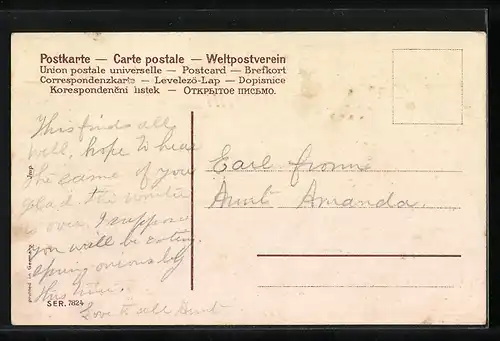 Postkarte — Carte postale — Weltpostverein
Union postale universelle — Postcard — Brefkort
Correspondenzkarte — Levelező-Lap — Dopisnice
Korespondenční lístek — Открытое письмо.
This finds all
well, hope to hear
the same of you
glad the winter
is over. I suppose
you will be eating
spring onions by
this time.
Love to all Aunt
Earl from
Aunt Amanda.
SER. 7824